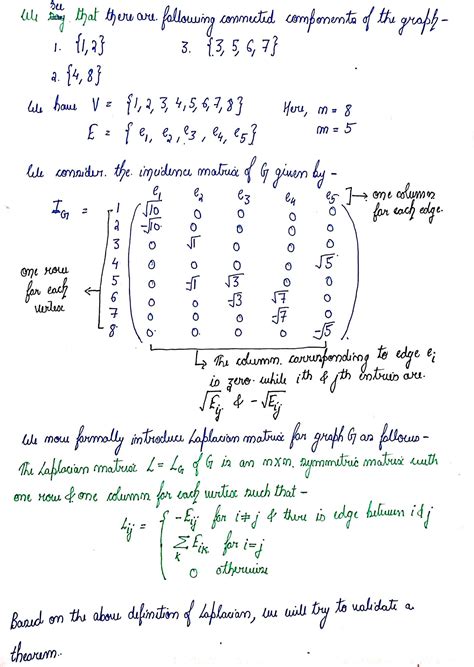 We see say that there are following connected components of the graph -
1. {1,2} 3. {3, 5, 6, 7}
2. {4, 8}
We have V = {1, 2, 3, 4, 5, 6, 7, 8} Here, n = 8
E = { e1, e2, e3, e4, e5 } m = 5
We consider the incidence matrix of G given by -
e1 e2 e3 e4 e5 → one column for each edge.
I_G = 1 √10 0 0 0 0
2 -√10 0 0 0 0
3 0 √1 0 0 0
4 0 0 0 0 √5
5 0 -√1 √3 0 0
6 0 0 -√3 √7 0
7 0 0 0 -√7 0
8 0 0 0 0 -√5
one row for each vertex
↳ The column corresponding to edge ei
is zero while ith & jth entries are
√Eij & -√Eij
We now formally introduce Laplacian matrix for graph G as follows -
The Laplacian matrix L = L_G of G is an n×n symmetric matrix with
one row & one column for each vertex such that -
Lij = { -Eij for i≠j & there is edge between i & j
∑k Eik for i=j
0 otherwise
Based on the above definition of Laplacian, we will try to validate a
theorem.